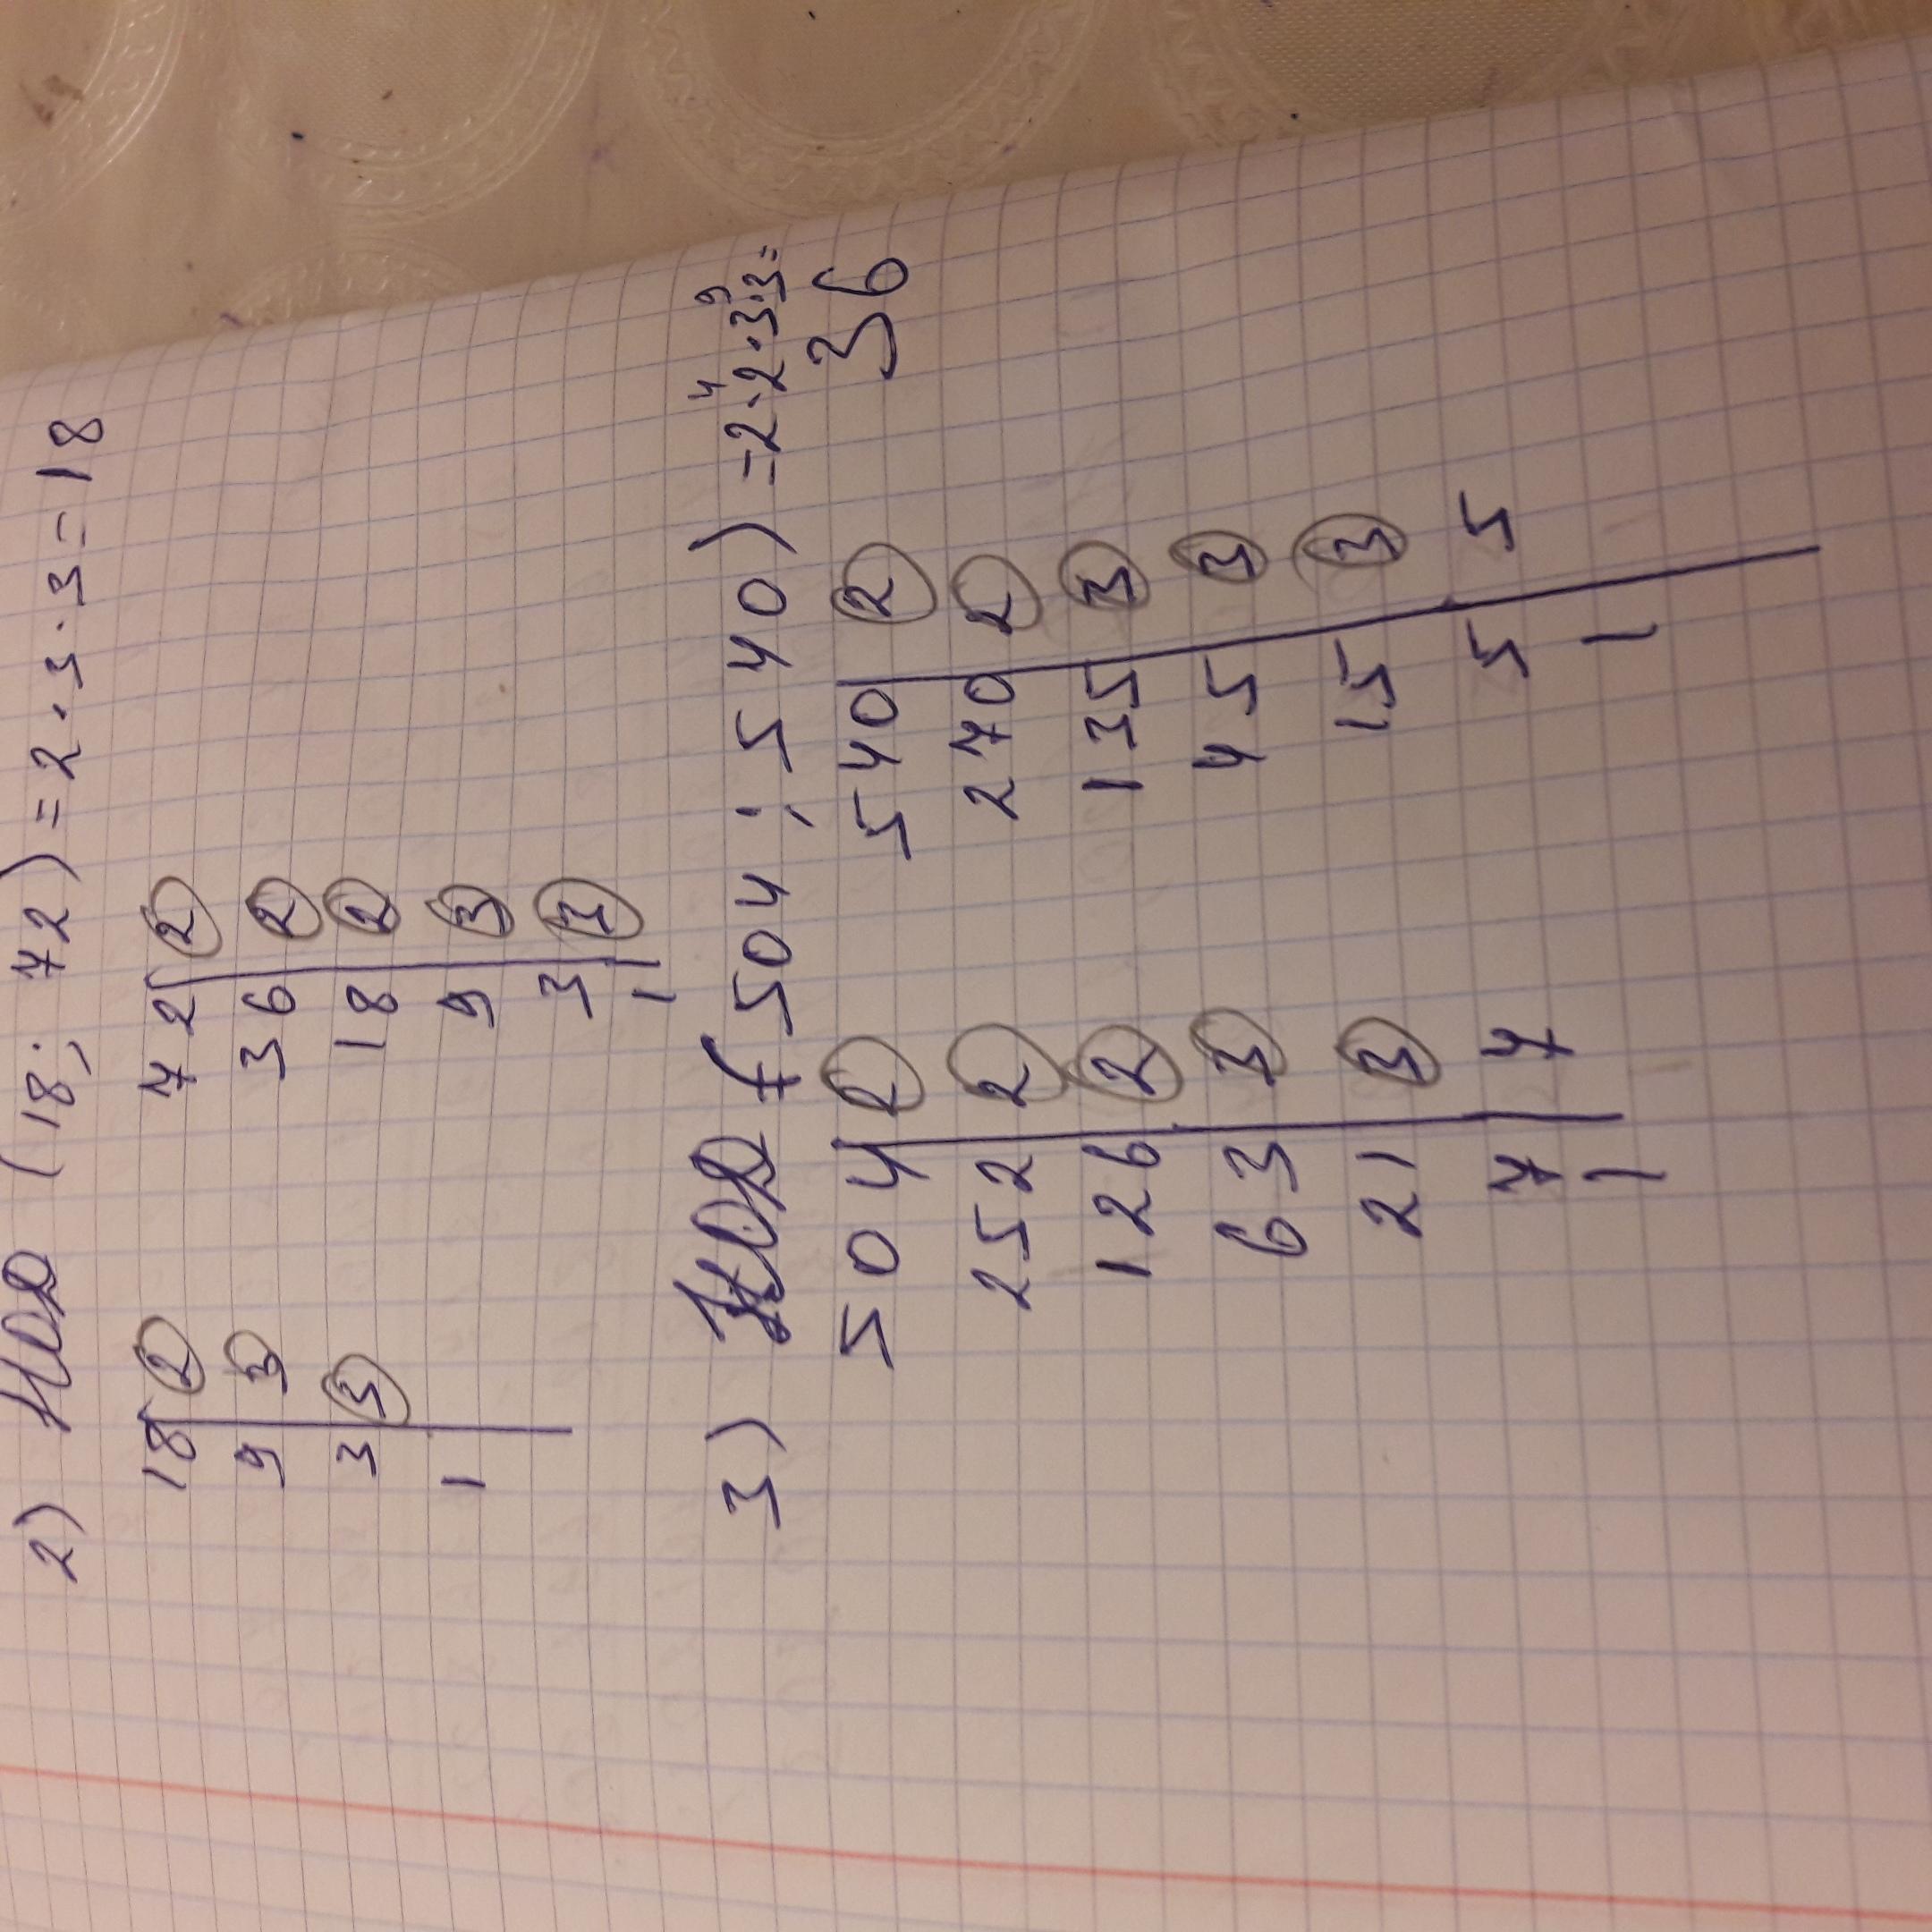 2) НОД (18; 72) = 2 · 3 · 3 = 18
18 2 72 2
9 3 36 2
3 3 18 2
1 9 3
3 3
1
3) НОД (504; 540) = 2 · 2 · 3 · 3 =
4 9
36
504 2 540 2
252 2 270 2
126 2 135 3
63 3 45 3
21 3 15 3
7 7 5 5
1 1